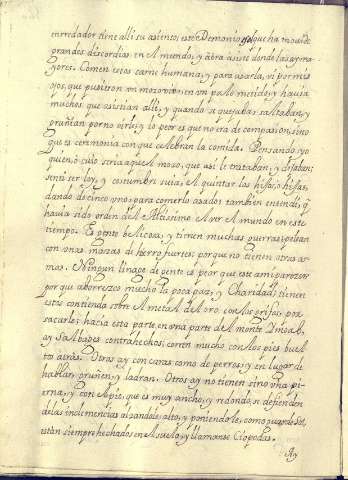 enrredador tiene alli su asiento: este Demonio es el que ha movido
grandes discordias en el mundo; y abra asisto donde las ay ma-
yores. Comen estos carne humana; y para asarla, vi por mis
ojos, que pusieron un mozo vivo en un palo metido; y havia
muchos que asistian alli; y quando se quejaba, saltaban, y
gruñian por no oirle; y lo peor es que no era de compasion, sino
que es ceremonia con que celebran la comida. Pensando yo
quien, ó cuio seria aquel mozo, que asi le trataban; y
senti ser ley, y costumbre suia, el quintar los hijos, ó hijas,
dando de cinco uno, para comerlo asado: tambien entendi, q̃
havia sido orden del Altissimo el ver el mundo en este
tiempo. Es gente belicosa, y tienen muchas guerras: pelean
con unas mazas de hierro fuertes; porque no tienen otras ar-
mas. Ningun linage de gente es peor que este, a mi parecer
por que aborrezco mucho la poca paz, y Charidad: tienen
estos contienda sobre el metal del oro, con los grifos, por
sacarlo; hacia esta parte en una parte del monte
ay Salbages contrahechos; corren mucho, con los pies buel-
to atrás. Otros ay con caras como de perros; y en lugar de
hablar, gruñen, y ladran. Otros ay no tienen sino una pi-
erna, y con el pie, que es muy ancho, y redondo, se defienden
de las inclemencias alzandole alto, y poniendole, como quando de sol,
están siempre hechados en el suelo, y llamanse Ciopodas.
Ay